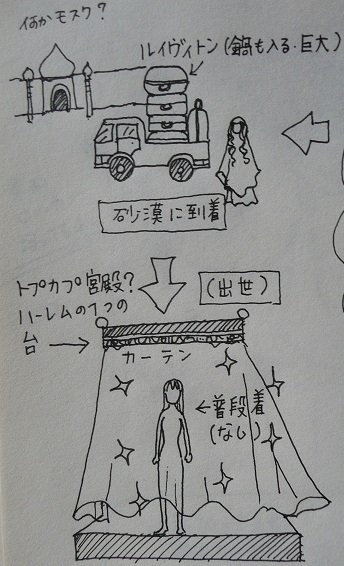 何かモスク?
ルイヴィトン(鍋も入る・巨大)
砂漠に到着
トプカプ宮殿?
ハーレムの1つの
台→
(出世)
カーテン
←普段着
(なし)